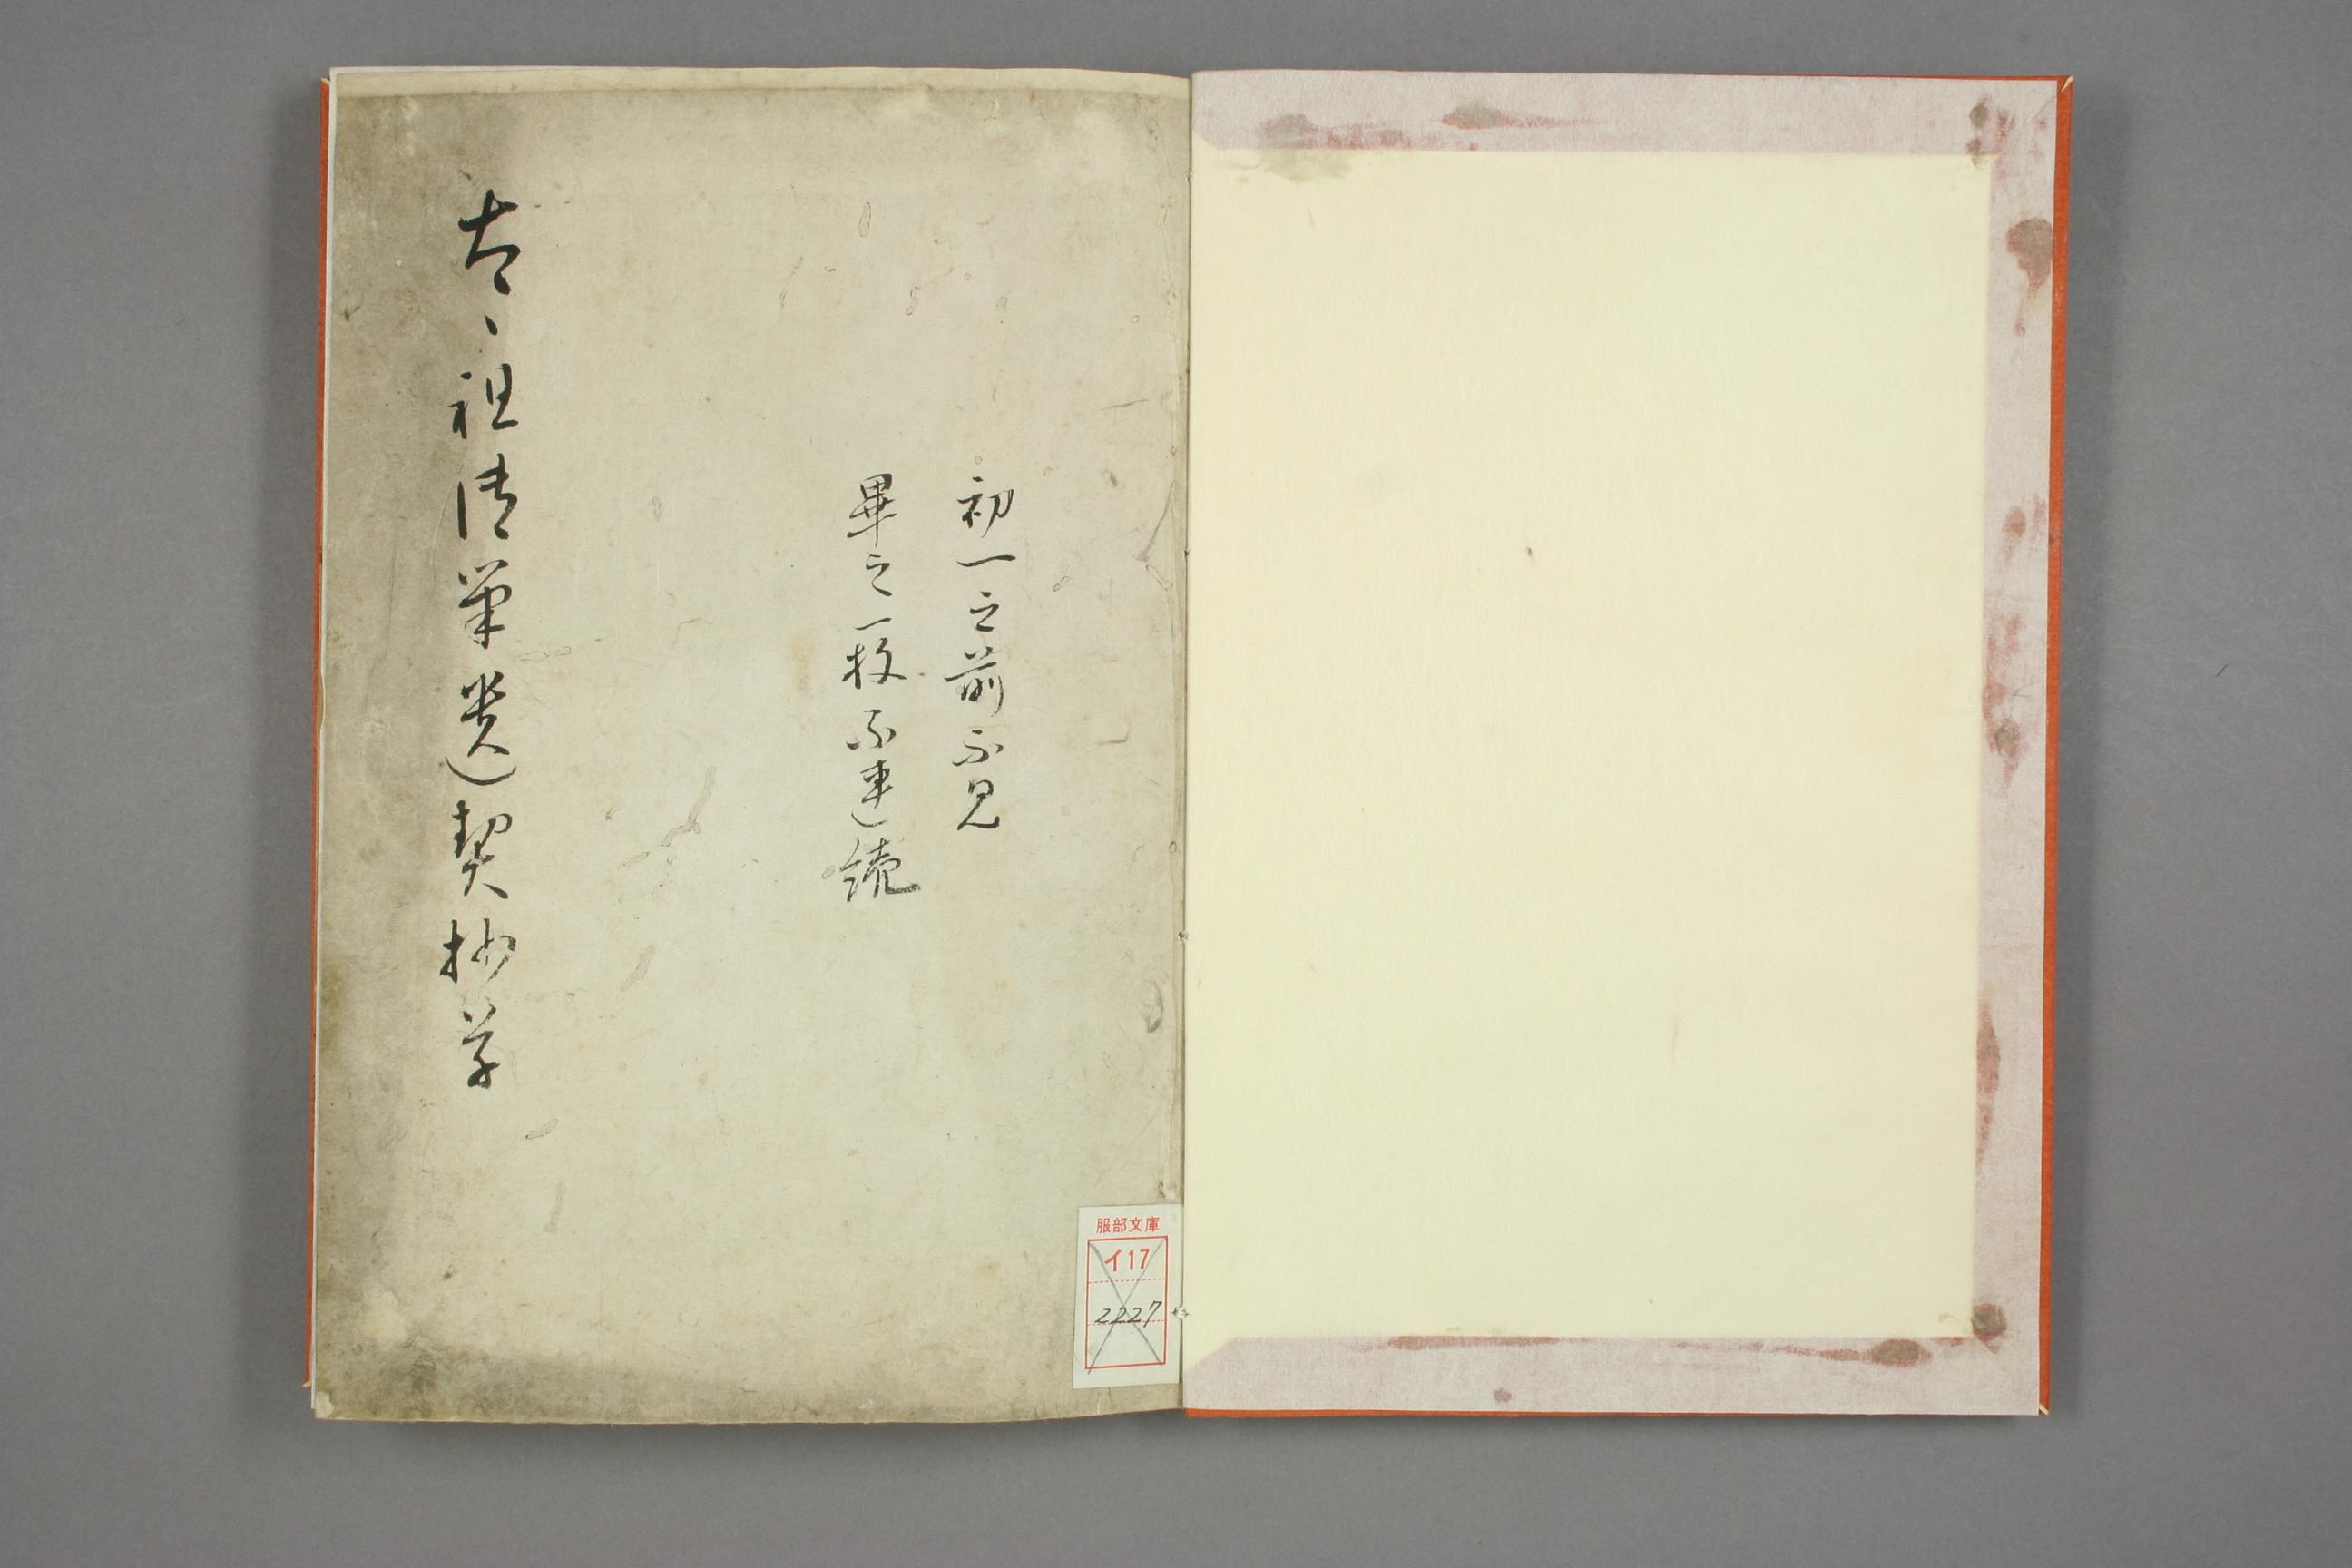 初一之前不見
畢之一枚不連続
祖御筆契抄草
服部文庫
イ17
2227